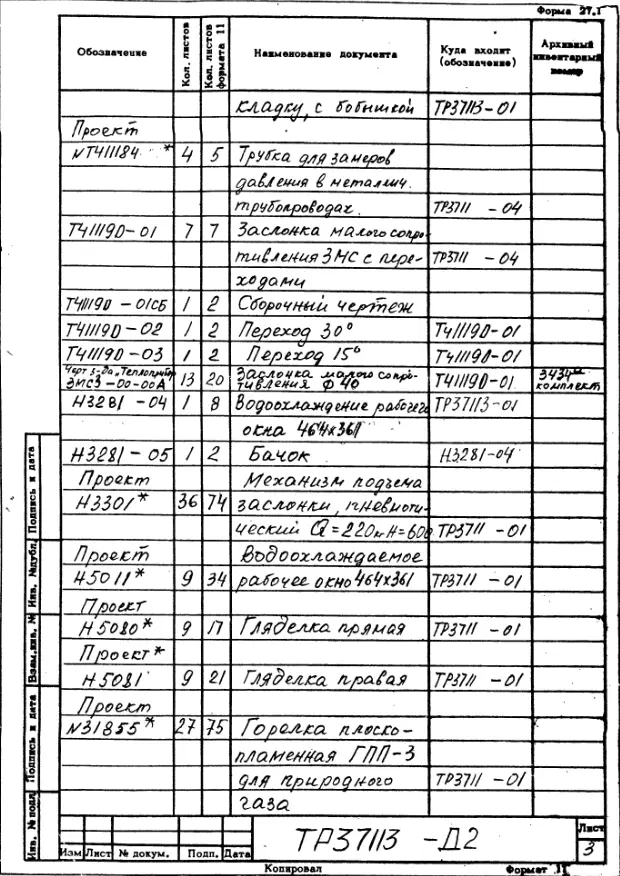 Форма 27.1
Обозначение Кол. листов Кол. листов формата 11 Наименование документа Куда входит (обозначение) Архивный инвентарный номер
кладку, с бобышкой ТР37113-01
Проект
NТ411184 * 4 5 Трубка для замеров
давления в металлич.
трубопроводах. ТР3711 -04
Т411190-01 7 7 Заслонка малого сопро-
тивления ЗМС с пере- ТР3711 -04
ходами
Т411190-01СБ 1 2 Сборочный чертеж
Т411190-02 1 2 Переход 30° Т411190-01
Т411190-03 1 2 Переход 15° Т411190-01
Черт з-да „Теплоприбор
ЗМС3-00-00А 13 20 Заслонка малого сопро-
тивления ф 40 Т411190-01 3434 комплект
Н3281 -04 1 8 Водоохлаждение рабочего ТР37113-01
окна 464х361
Н3281-05 1 2 Бачок Н3281-04
Проект Механизм подъема
Н3301* 36 74 заслонки, пневмати-
ческий Q=220кг Н=600 ТР3711 -01
Проект Водоохлаждаемое
Н5011* 9 34 рабочее окно 464х361 ТР3711 -01
Проект
Н5080* 9 17 Гляделка прямая ТР3711 -01
Проект*
Н5081 9 21 Гляделка правая ТР3711 -01
Проект
N31855* 27 75 Горелка плоско-
пламенная ГПП-3
для природного ТР3711 -01
газа
Подпись и дата
Инв. №дубл.
Взам.инв. №
Подпись и дата
Инв. № подл.
Изм Лист № докум. Подп. Дата
ТР37113 -Д2
Лист
3
Копировал Формат 11